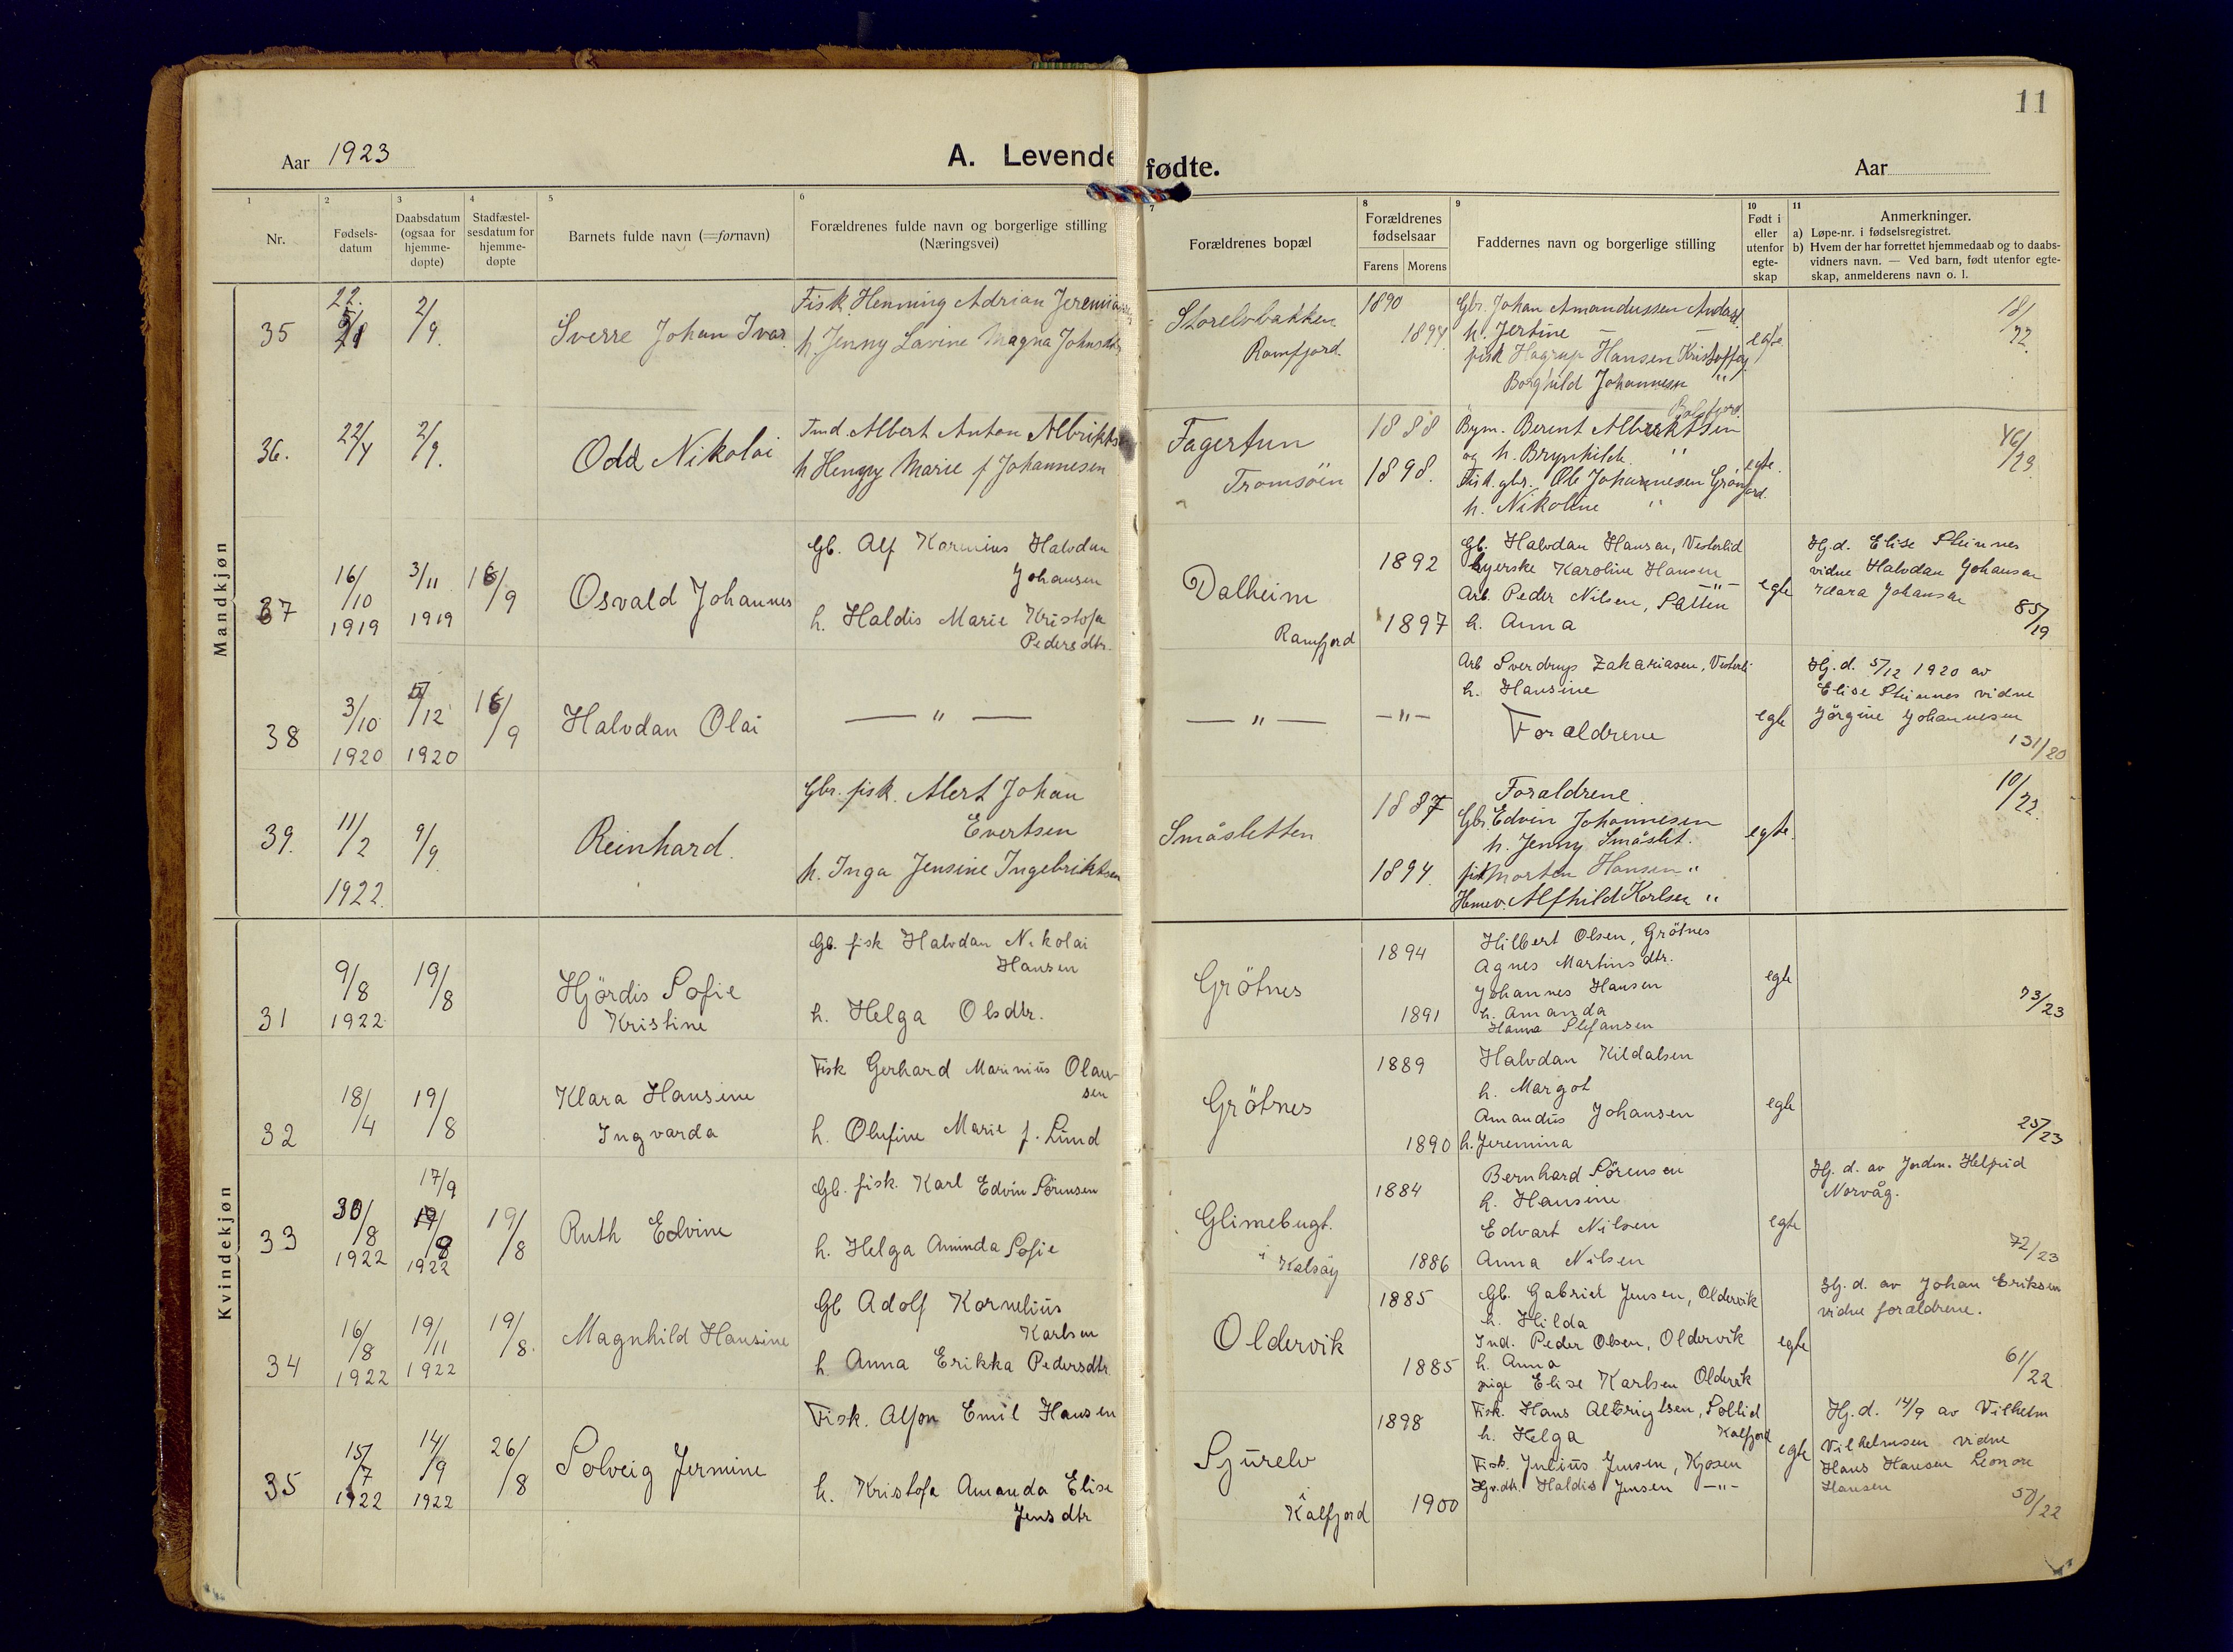 11
Aar 1923
A. Levende fødte.
Aar
1 2 3 4 5 6 7 8 9 10 11
Nr.
Fødsels-
datum
Daabsdatum
(ogsaa for
hjemme-
døpte)
Stadfæstel-
sesdatum for
hjemme-
døpte
Barnets fulde navn (=fornavn)
Forældrenes fulde navn og borgerlige stilling
(Næringsvei)
Forældrenes bopæl
Forældrenes
fødselsaar
Farens Morens
Faddernes navn og borgerlige stilling
Født i
eller
utenfor
egte-
skap
Anmerkninger.
a) Løpe-nr. i fødselsregistret.
b) Hvem der har forrettet hjemmedaab og to daabs-
vidners navn. — Ved barn, født utenfor egte-
skap, anmelderens navn o. l.
Mandkjøn
35
2/9.
Sverre Johan Ivar
Fisk. Henning Adrian
h. Jenny Lavine Magna
Storelvbakken
Ramfjord.
1890
1894
Gbr. Johan Amandussen
h. Jertine
fisk Hagrup Hansen
Borghild Johannesen "
egte
18/
22.
36.
22/4
2/9.
Odd Nikolai
Albert Anton
h Henny Marie f Johannesen
Fagertun
Tromsöen
1888
1898.
Balsfjord.
Bym. Berent Albriktsen
og h. Brynhild "
Fisk. gbr. Ole Johannesen
h. Nikoline "
egte.
46/
23.
37
16/10
1919
3/11
1919
16/9
Osvald Johannes
Gb. Alf Kornius Halvdan
Johansen
h. Haldis Marie Kristofa
Pedersdtr.
Dalheim
Ramfjord
1892
1897
Gb. Halvdan Hansen, Vesterlid
Karoline Hansen —"—
Arb. Peder Nilsen,
h. Anna
egte
Hj.d. Elise Steinnes
vidne Halvdan Johansen
Klara Johansen
85/19
38
3/10
1920
5/12
1920
16/9
Halvdan Olai
— " —
— " —
—"—
Arb Sverdrup Zakariasen,
h. Hansine
Forældrene
egte
Hj.d. 5/12 1920 av
Elise Steinnes vidne
Jörgine Johannesen
131/20
39.
11/2
1922.
9/9.
Reinhard.
Gbr. fisk. Alert Johan
Evertsen
h. Inga Jensine Ingebriktsen
Småsletten
1887
1894.
Forældrene.
Gbr. Edvin Johannesen
h. Jenny Småslet.
fisk Morten Hansen "
Alfhild Karlsen "
egte.
10/22.
Kvindekjøn
31
9/8
1922
19/8
Hjördis Sofie
Kristine
Gb. fisk Halvdan Nikolai
Hansen
h. Helga Olsdtr.
Grötnes
1894
1891
Hilbert Olsen, Grötnes
Agnes Martinsdtr.
Johannes Hansen
h. Amanda
Hanna Stefansen
egte
73/23
32
18/4
19/8
Klara Hansine
Ingvarda
Fisk Gerhard Marinius Olau-
sen
h. Olufine Marie f. Lund
Grötnes
1889
1890
Halvdan Kildalsen
h. Margot
Amandus Johansen
h. Jeremina
egte
25/23
33
30/8
1922
17/9
1922
19/8
Ruth Edvine
Gb. fisk. Karl Edvin Sörensen
h. Helga Aminda Sofie
Glimebugt.
i Kalsöy
1884
1886
Bernhard Sörensen
h. Hansine
Edvart Nilsen
Anna Nilsen
egte
Hj. d. av Jordm. Helfrid
Norvåg.
72/23
34
16/8
1922
19/11
1922
19/8.
Magnhild Hansine
Gb Adolf Kornelius
Karlsen
h. Anna Erikka Pedersdtr.
Oldervik
1885
1885
Gb. Gabriel Jensen, Oldervik
h. Hilda
Ind. Peder Olsen, Oldervik
h. Anna
pige Elise Karlsen Oldervik
egte
Hj. d. av Johan Eriksen
vidne forældrene.
61/22
35
15/7
1922
14/9
1922
26/8
Solveig Jermine
Fisk. Alfon Emil Hansen
h. Kristofa Amanda Elise
Jensdtr
Sjurelv
i
Kalfjord
1898
1900
Fisk. Hans Albrigtsen, Sollid
h. Helga Kalfjord
Fisk. Julius Jensen, Kjosen
Hjv.dtr. Haldis Jensen —"—
egte
Hj.d. 14/9 av Vilhelm
Vilhelmsen vidne
Hans Hansen Leonore
Hansen
50/22